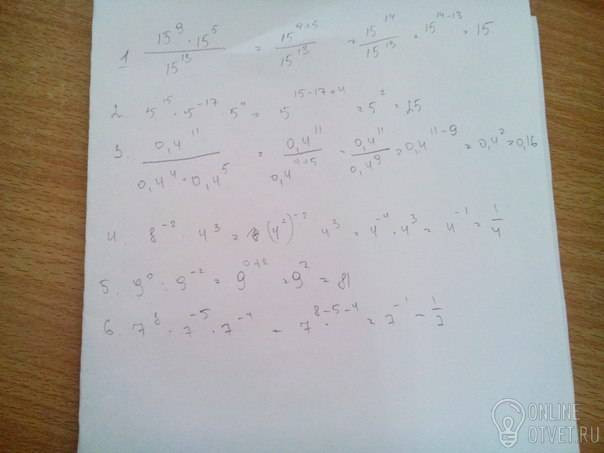 1 15⁹ · 15⁵ / 15¹³ = 15⁹⁺⁵ / 15¹³ = 15¹⁴ / 15¹³ = 15¹⁴⁻¹³ = 15
2. 5¹⁵ · 5⁻¹⁷ 5⁴ = 5¹⁵⁻¹⁷⁺⁴ = 5² = 25
3. 0,4¹¹ / 0,4⁴ · 0,4⁵ = 0,4¹¹ / 0,4⁴⁺⁵ = 0,4¹¹ / 0,4⁹ = 0,4¹¹⁻⁹ = 0,4² = 0,16
4. 8⁻² · 4³ = (4²)⁻² 4³ = 4⁻⁴ · 4³ = 4⁻¹ = 1/4
5. 9⁰ : 9⁻² = 9⁰⁺² = 9² = 81
6. 7⁸ · 7⁻⁵ · 7⁻⁴ = 7⁸⁻⁵⁻⁴ = 7⁻¹ = 1/7
ONLINE
OTVET.RU